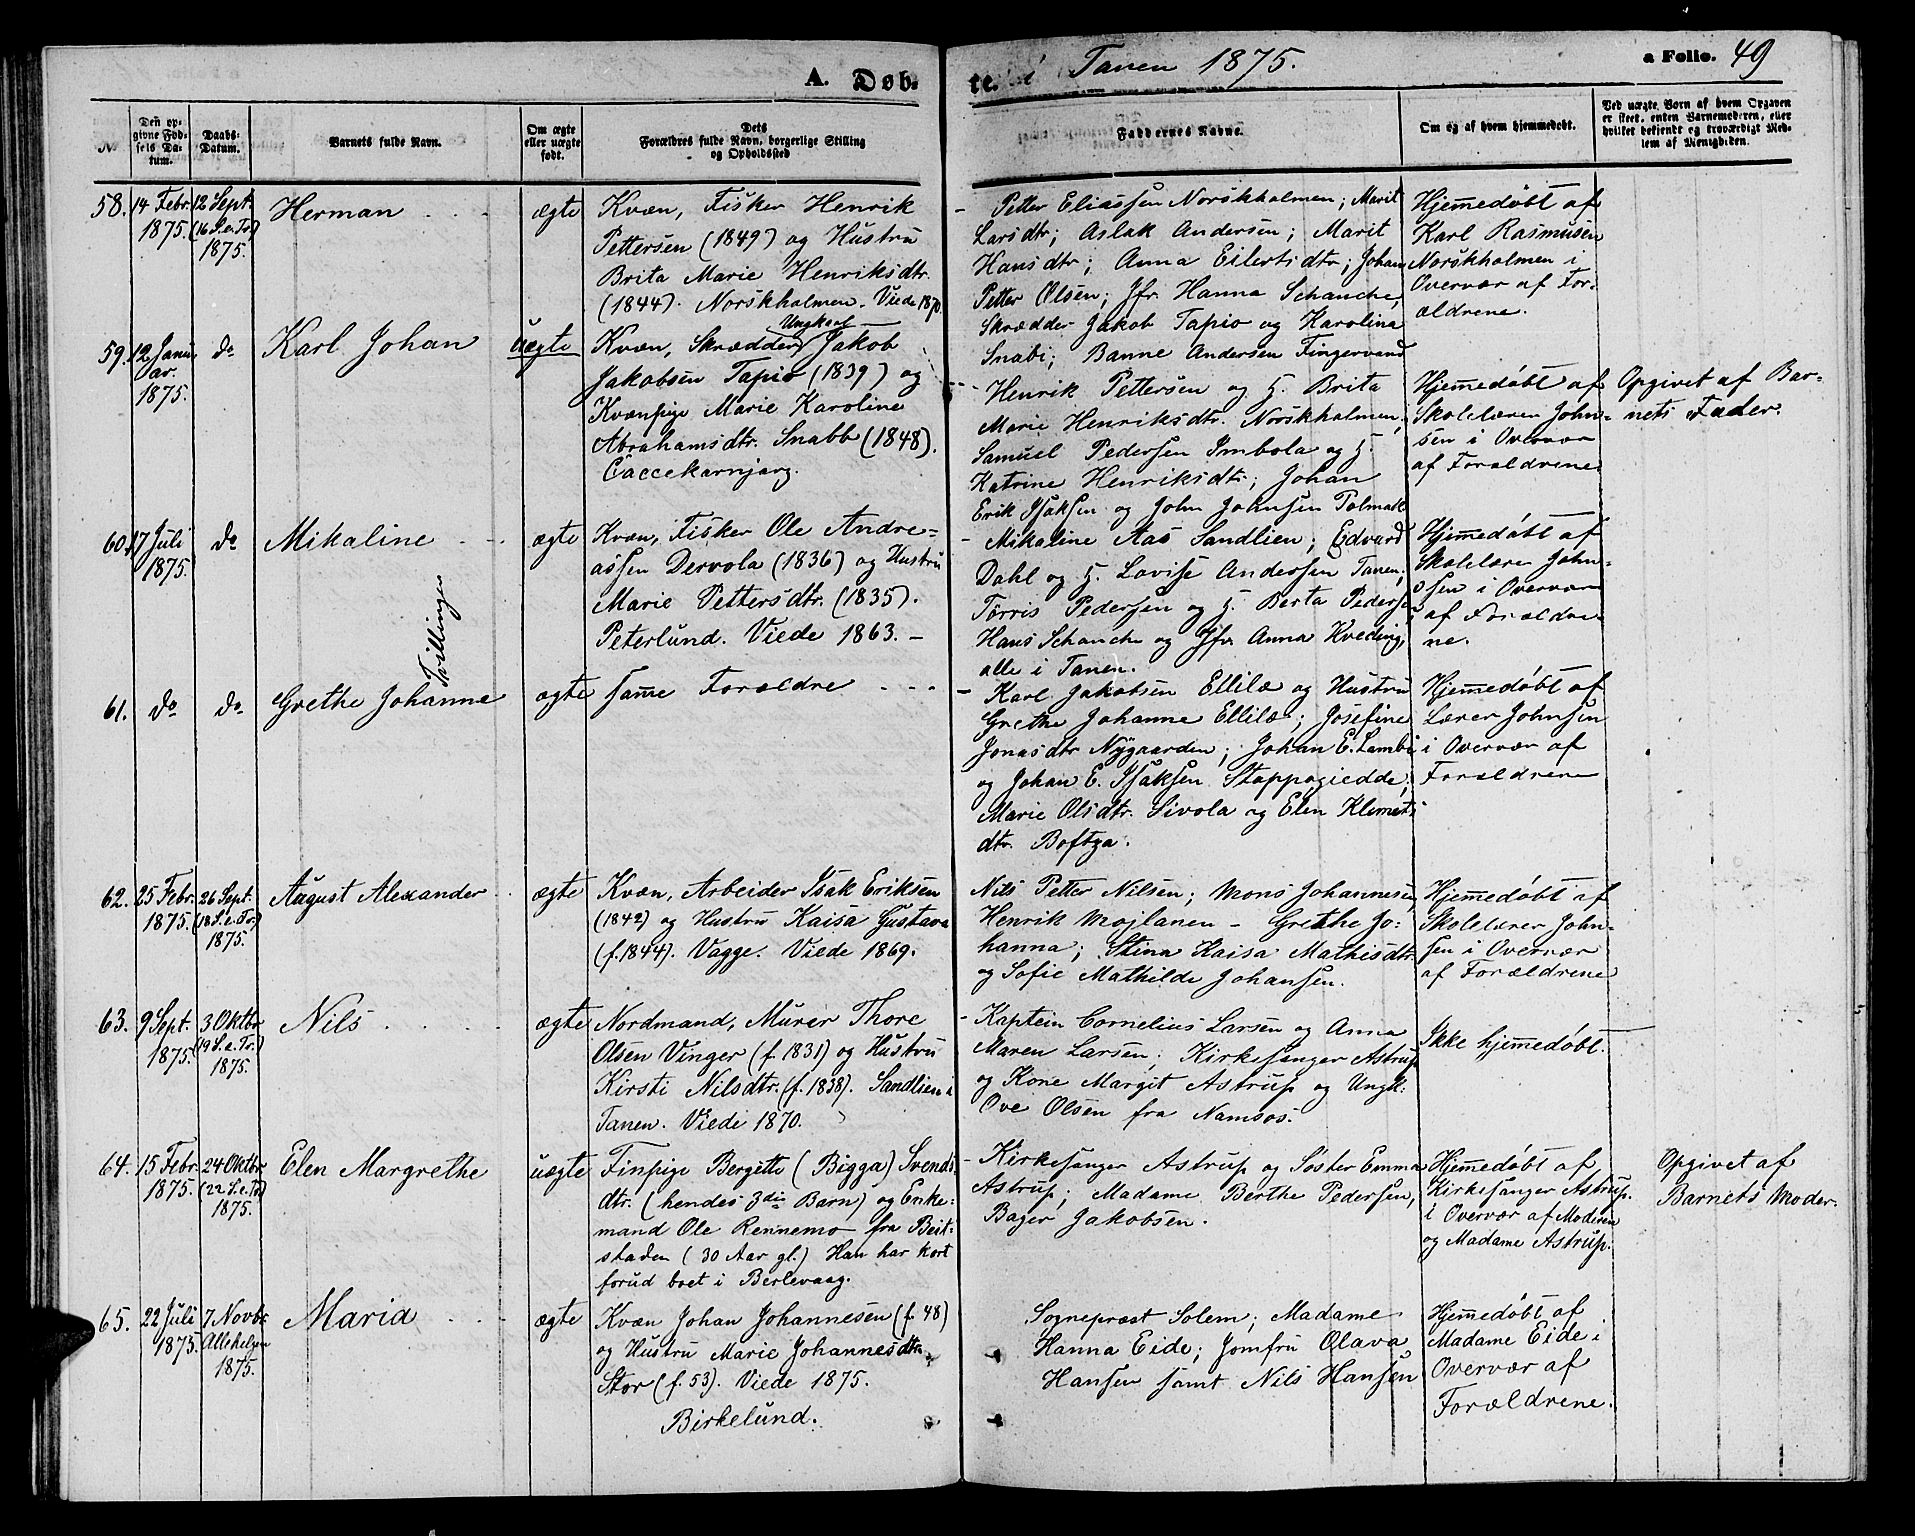 A. Døb-
te. i Tanen 1875.
a Folio. 49
N
Den op-
givne Fød-
sels Da-
tum.
Daabs-
Datum.
Barnets fulde Navn.
Om ægte
eller uægte
født.
Dets
Forældres fulde Navn, borgerlige Stilling
og Opholdssted
Faddernes Navne.
Om og af hvem hjemmedøbt.
Ved uægte Børn af hvem Opgaven
er skeet, enten Barnemoderen, eller
hvilket bekjendt og troværdigt Med-
lem af Menigheden.
58.
14 Febr.
1875.
12 Sept.
(16 S. e. Tr.)
1875.
Herman
ægte
Kvæn, Fisker Henrik
Pettersen (1849) og Hustru
Brita Marie Henriksdtr.
(1844). Norskholmen. Viede 1870.
- Petter Eliassen Norskholmen; Marit
Larsdtr; Aslak Andersen; Marit
Hansdtr; Anna Eilertsdtr; Johan
Petter Olsen; Jfr. Hanna Schanche,
Skrædder Jakob Tapio og Karolina
Snabi; Banne Andersen Fingervand
Hjemmedøbt af
Karl Rasmusen
Norskholmen i
Overvær af For-
ældrene.
59.
12 Janu-
ar.
1875.
do
Karl Johan
uægte
Ungkarl
Kvæn, Skrædder Jakob
Jakobsen Tapio (1839) og
Kvænpige Marie Karoline
Abrahamsdtr. Snabb (1848).
Caccekarnjarg.
- Henrik Pettersen og H. Brita
Marie Henriksdtr. Norskholmen;
Samuel Pedersen Imbola og H.
Katrine Henriksdtr; Johan
Erik Isaksen og John Johnsen Polmak
Hjemmedøbt af
Skolelærer John-
sen i Overvær
af Forældrene
Opgivet af Bar-
nets Fader.
60.
17 Juli
1875.
do
Mikaline
Tvillinger
ægte
Kvæn, Fisker Ole Andre-
assen Dervola (1836) og Hustru
Marie Pettersdtr. (1835).
Peterlund. Viede 1863. -
- Mikaline Aas Sandlien; Edvard
Dahl og H. Lovise Andersen Tanen;
Tørris Pedersen og H. Berta Peders.,
Hans Schanche og Jfr Anna Kveding,
alle i Tanen.
Hjemmedøbt af
Skolelærer John-
sen i Overvær
af Forældre-
ne.
61.
do
do
Grethe Johanne
ægte
samme Forældre
- Karl Jakobsen Ellilæ og Hustru
Grethe Johanne Ellilæ; Josefine
Jonasdtr Nygaarden; Johan E. Lambi
og Johan E. Isaksen Stappogiedde;
Marie Olsdtr. Sivola og Elen Klemets-
dtr. Boftsa.
Hjemmedøbt af
Lærer Johnsen
i Overvær af
Forældrene
62.
25 Febr.
1875.
26 Sept.
(18 S. e. Tr.)
1875.
August Alexander
ægte
Kvæn, Arbeider Isak Eriksen
(1842) og Hustru Kaisa Gustava
(f. 1844). Vagge. Viede 1869.
Nils Petter Nilsen; Mons Johannesen,
Henrik Mojlanen - Grethe Jo-
hanna; Stina Kaisa Mathisdtr.
og Sofie Mathilde Johansen.
Hjemmedøbt af
Skolelærer John-
sen i Overvær
af Forældrene
63.
9 Sept.
1875.
3 Oktbr
(19 S. e. Tr.)
1875.
Nils
ægte
Nordmand, Murer Thore
Olsen Vinger (f. 1831) og Hustru
Kirsti Nilsdtr. (f. 1838). Sandlien i
Tanen. Viedi 1870.
- Kaptein Cornelius Larsen og Anna
Maren Larsen; Kirkesanger Astrup
og Kone Margit Astrup og Ungk:
Ove Olsen fra Namsos.
Ikke hjemmedøbt.
64.
15 Febr.
1875.
24 Oktbr.
(22 S. e. Tr.)
1875.
Elen Margrethe
uægte
Finpige Bergitte (Bigga) Svends-
dtr. (hendes 3die Barn) og Enke-
mand Ole Rennemo fra Beit-
staden (30 Aar gl.) Han har kort
forud boet i Berlevaag.
- Kirkesanger Astrup og Søster Emma
Astrup; Madame Berthe Pedersen,
Bager Jakobsen.
Hjemmedøbt af
Kirkesanger Astrup.
i Overvær af Moderen
og Madame Astrup.
Opgivet af
Barnets Moder.
65.
22 Juli
1875.
7 Novbr.
Allehelgen
1875.
Maria
ægte
Kvæn Johan Johannesen (f. 48)
og Hustru Marie Johannesdtr.
Stor (f. 53). Viede 1875.
Birkelund.
Sognepræst Solem; Madame
Hanna Eide; Jomfru Olava
Hansen samt Nils Hansen
Hjemmedøbt af
Madame Eide i
Overvær af
Forældrene.